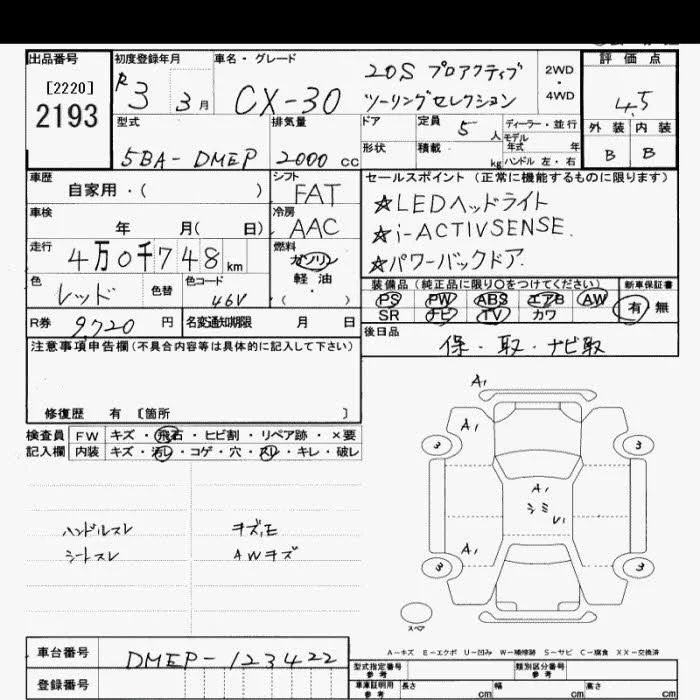 出品番号 初度登録年月 車名・グレード 評価点
[2220]
2193
R3 3月 CX-30 20S プロアクティブ
ツーリングセレクション 2WD・4WD 4.5
型式 排気量 ドア 定員 5人 ディーラー・並行 外装 内装
モデル年式 年
5BA-DMEP 2000cc 形状 積載 kg ハンドル 左・右 B B
車歴 シフト セールスポイント(正常に機能するものに限ります)
自家用・( ) FAT ☆LEDヘッドライト
車検 冷房
年 月( 日) AAC ☆i-ACTIVSENSE.
走行 燃料
4万0千748km ガソリン ☆パワーバックドア.
色 色替 色コード 軽油
レッド 46V ・( )
装備品(純正品に限り○をつけてください) 新車保証書
PS PW ABS エアB AW 有・無
SR ナビ TV カワ
R券 9,720円 名変通知期限 月 日
後日品 保・取・ナビ取
注意事項申告欄(不具合内容等は具体的に記入して下さい)
修復歴 有 〔箇所 〕
検査員 FW キズ・飛石・ヒビ割・リペア跡・×要
記入欄 内装 キズ・汚レ・コゲ・穴・スレ・キレ・破レ
ハンドルスレ キズ,E
シートスレ AWキズ
A1
A1
3 3
A1
シミ
U1
A1
3 3
スペア
A-キズ E-エクボ U-凹み W-補修跡 S-サビ C-腐食 XX-交換済
車台番号 DMEP-123422
型式指定番号 参考 類別区分番号 参考
登録番号 車庫証明用 参考 長さ cm 幅 cm 高さ cm